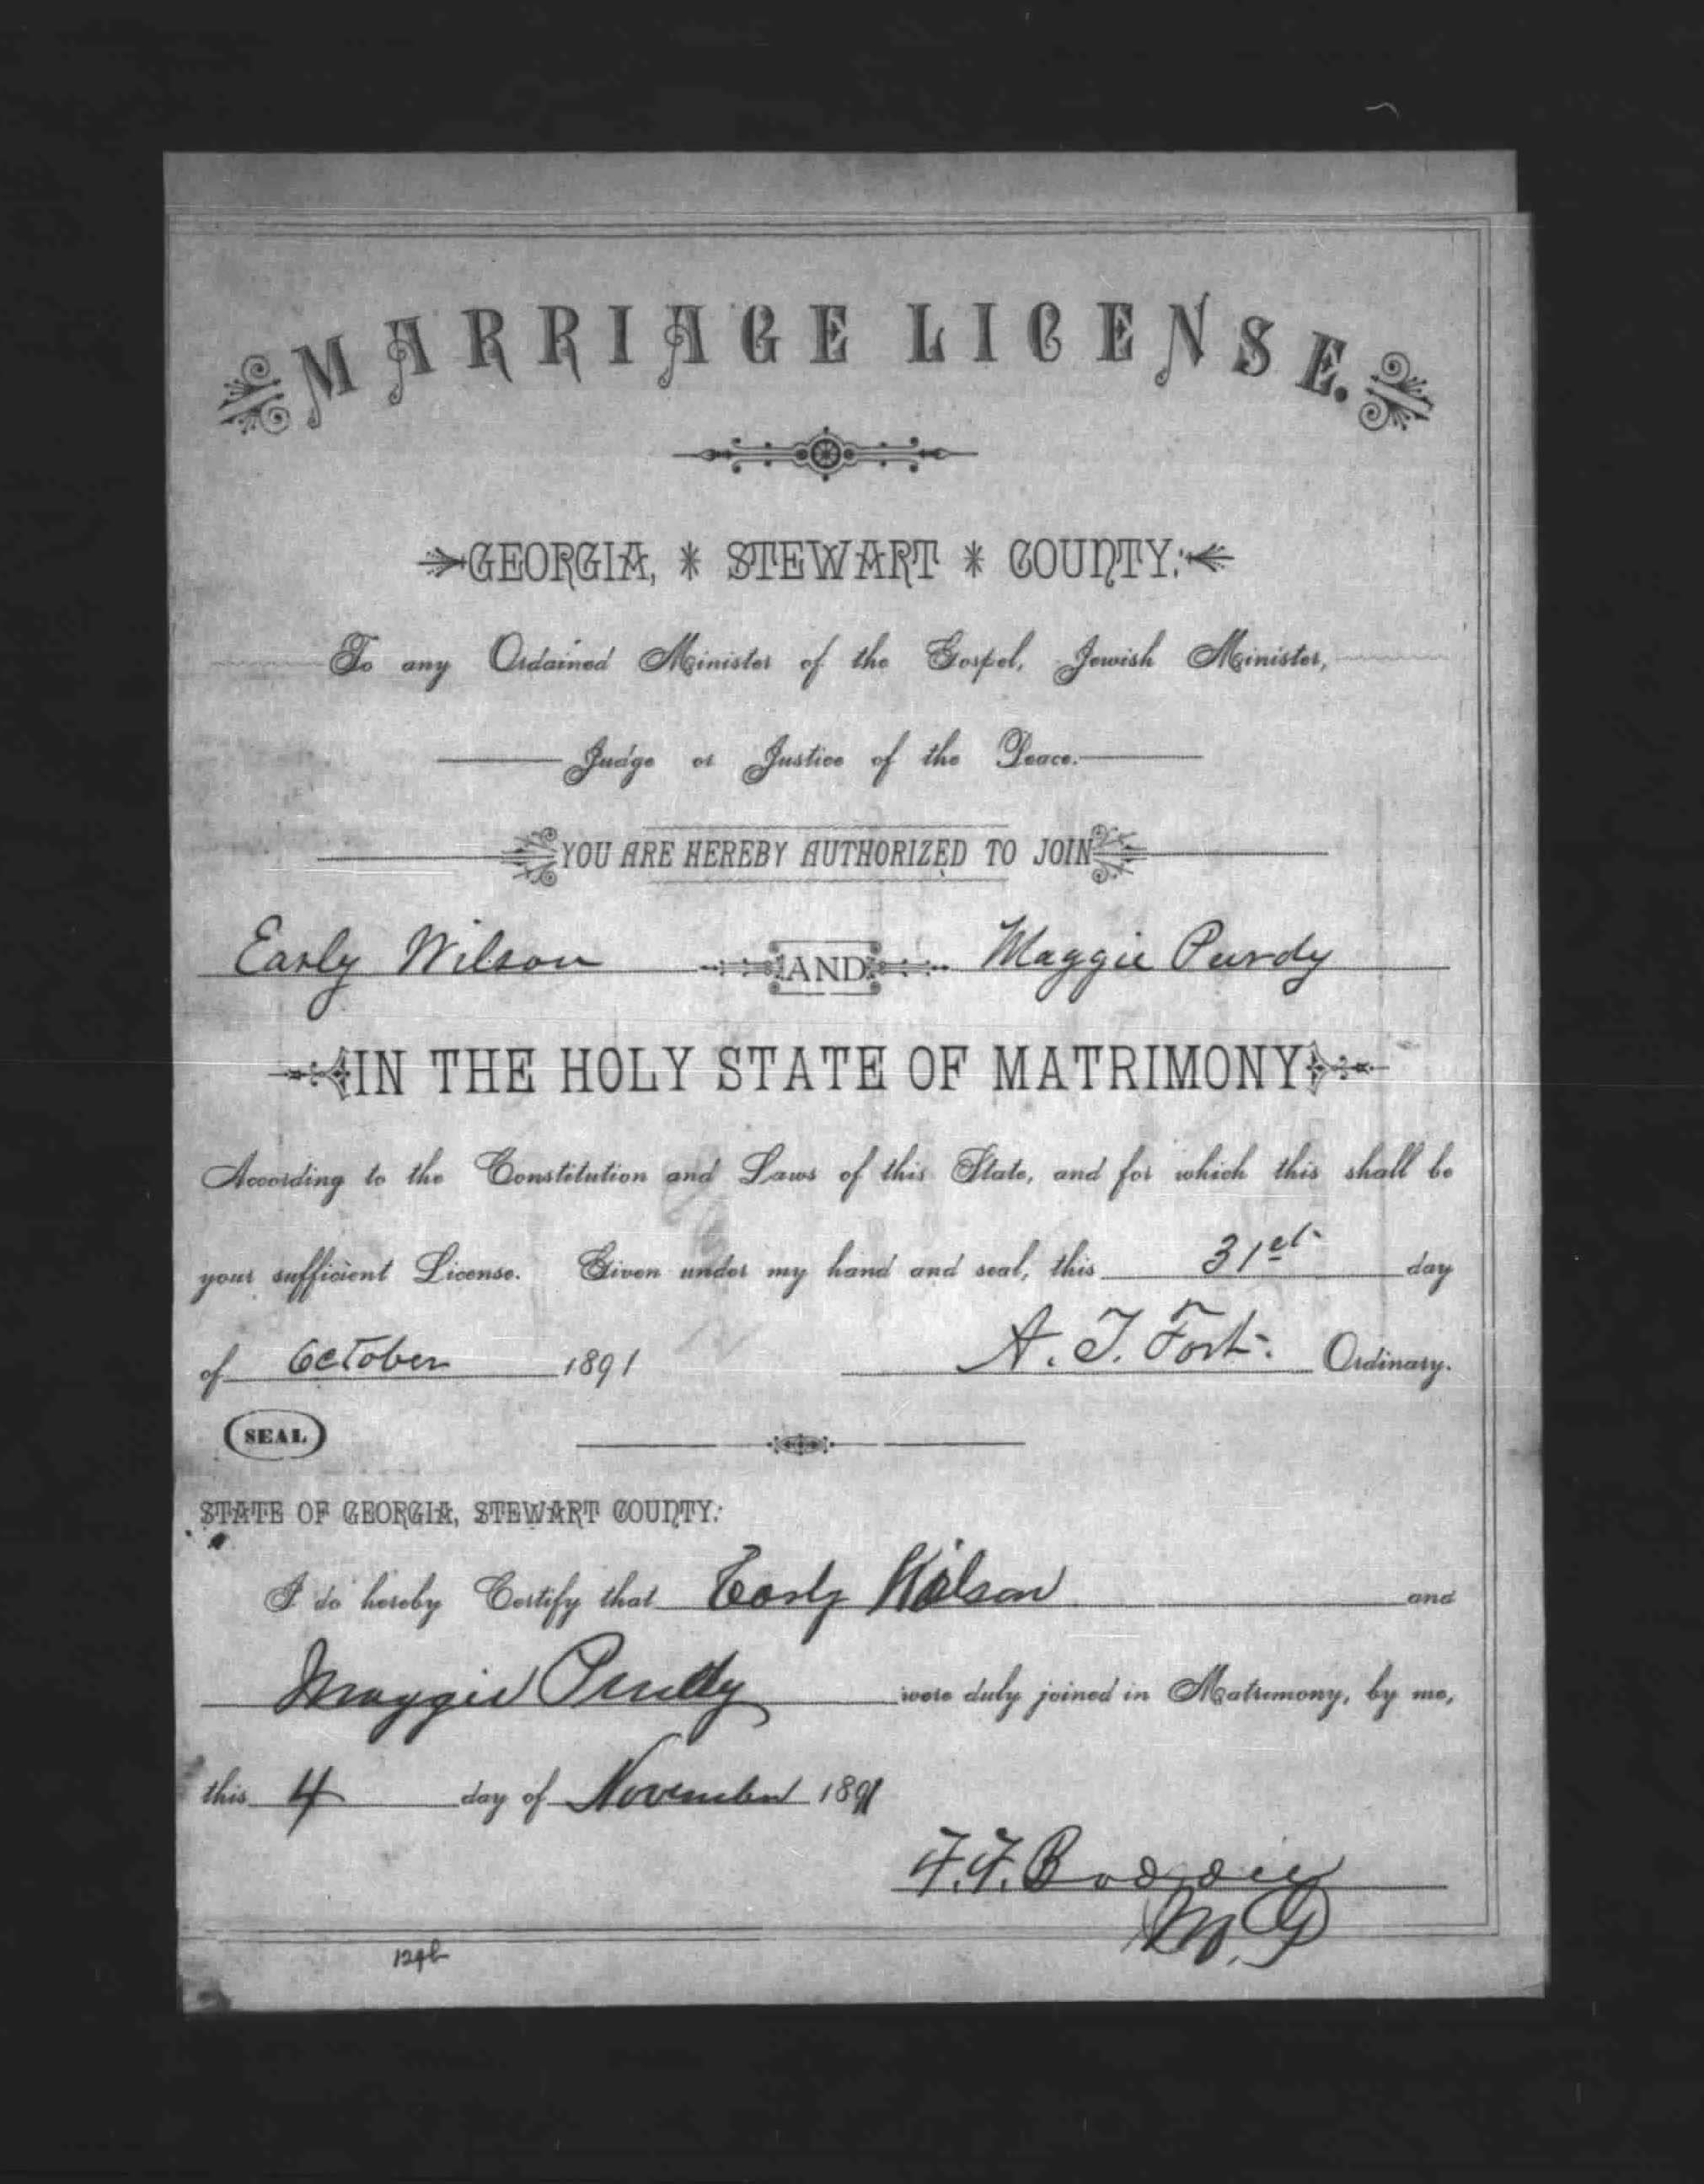 MARRIAGE LICENSE.
GEORGIA, * STEWART * COUNTY:
To any Ordained Minister of the Gospel, Jewish Minister,
Judge or Justice of the Peace.
YOU ARE HEREBY AUTHORIZED TO JOIN
Early Wilson AND Maggie Purdy
IN THE HOLY STATE OF MATRIMONY
According to the Constitution and Laws of this State, and for which this shall be
your sufficient License. Given under my hand and seal, this 31st day
of October 1891 A. T. Fort. Ordinary.
SEAL
STATE OF GEORGIA, STEWART COUNTY:
I do hereby Certify that Early Wilson and
Maggie Purdy were duly joined in Matrimony, by me,
this 4 day of November 1891
F. F. Boddie
M. G